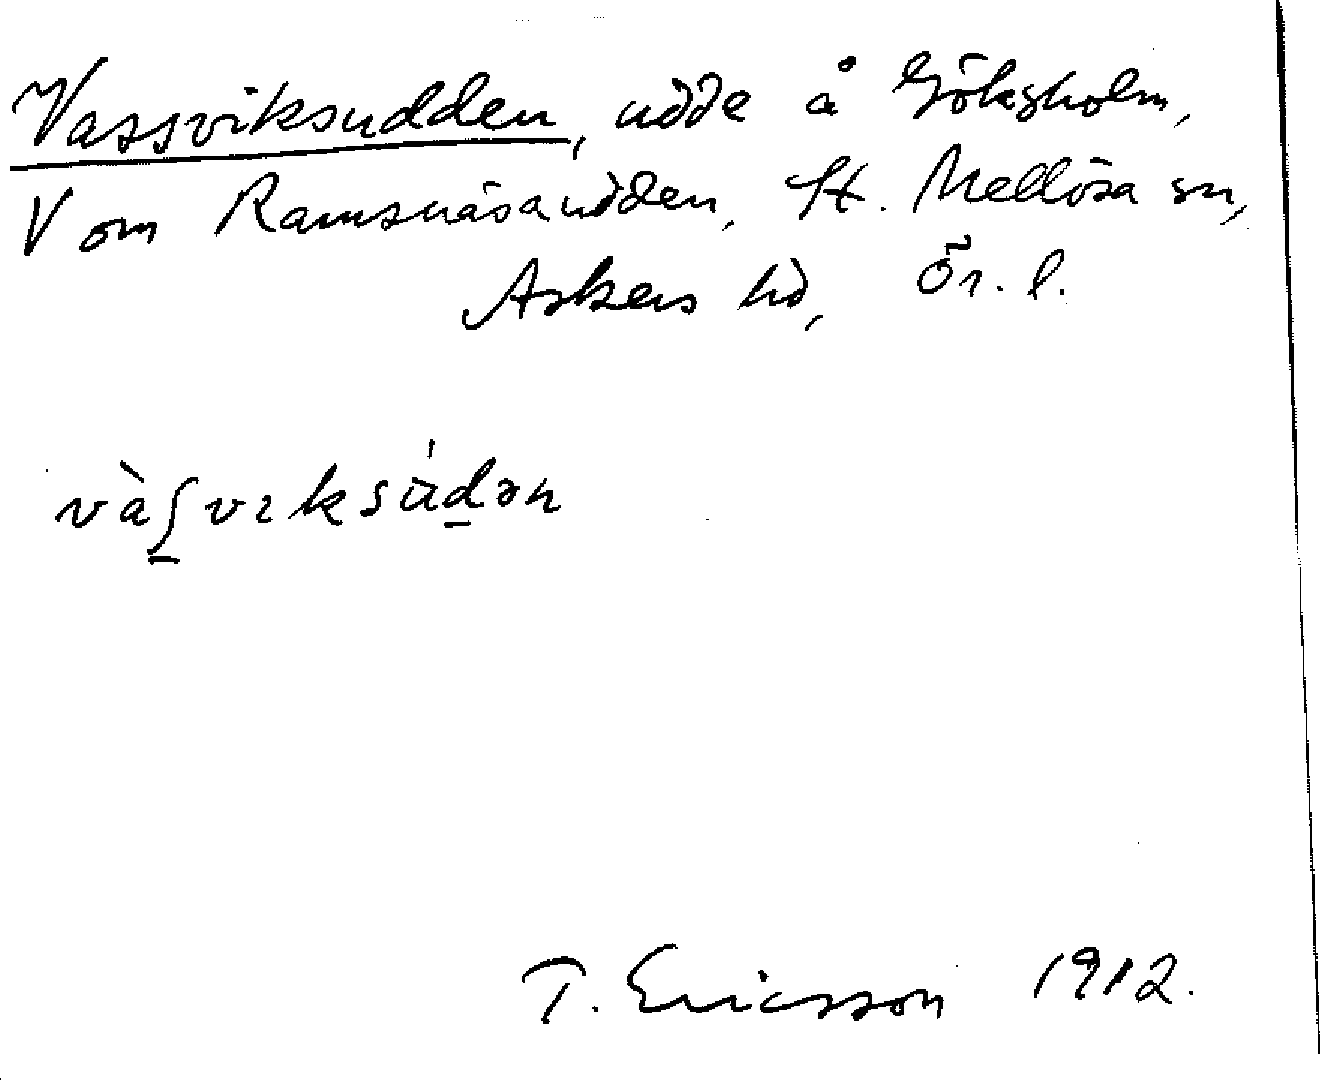 Vassviksudden, udde å Göksholm,
V om Ramsnäsaudden, St. Mellösa sn,
Askers hd, Ör. l.
và̀ʃvıksúdən
T. Ericsson 1912.